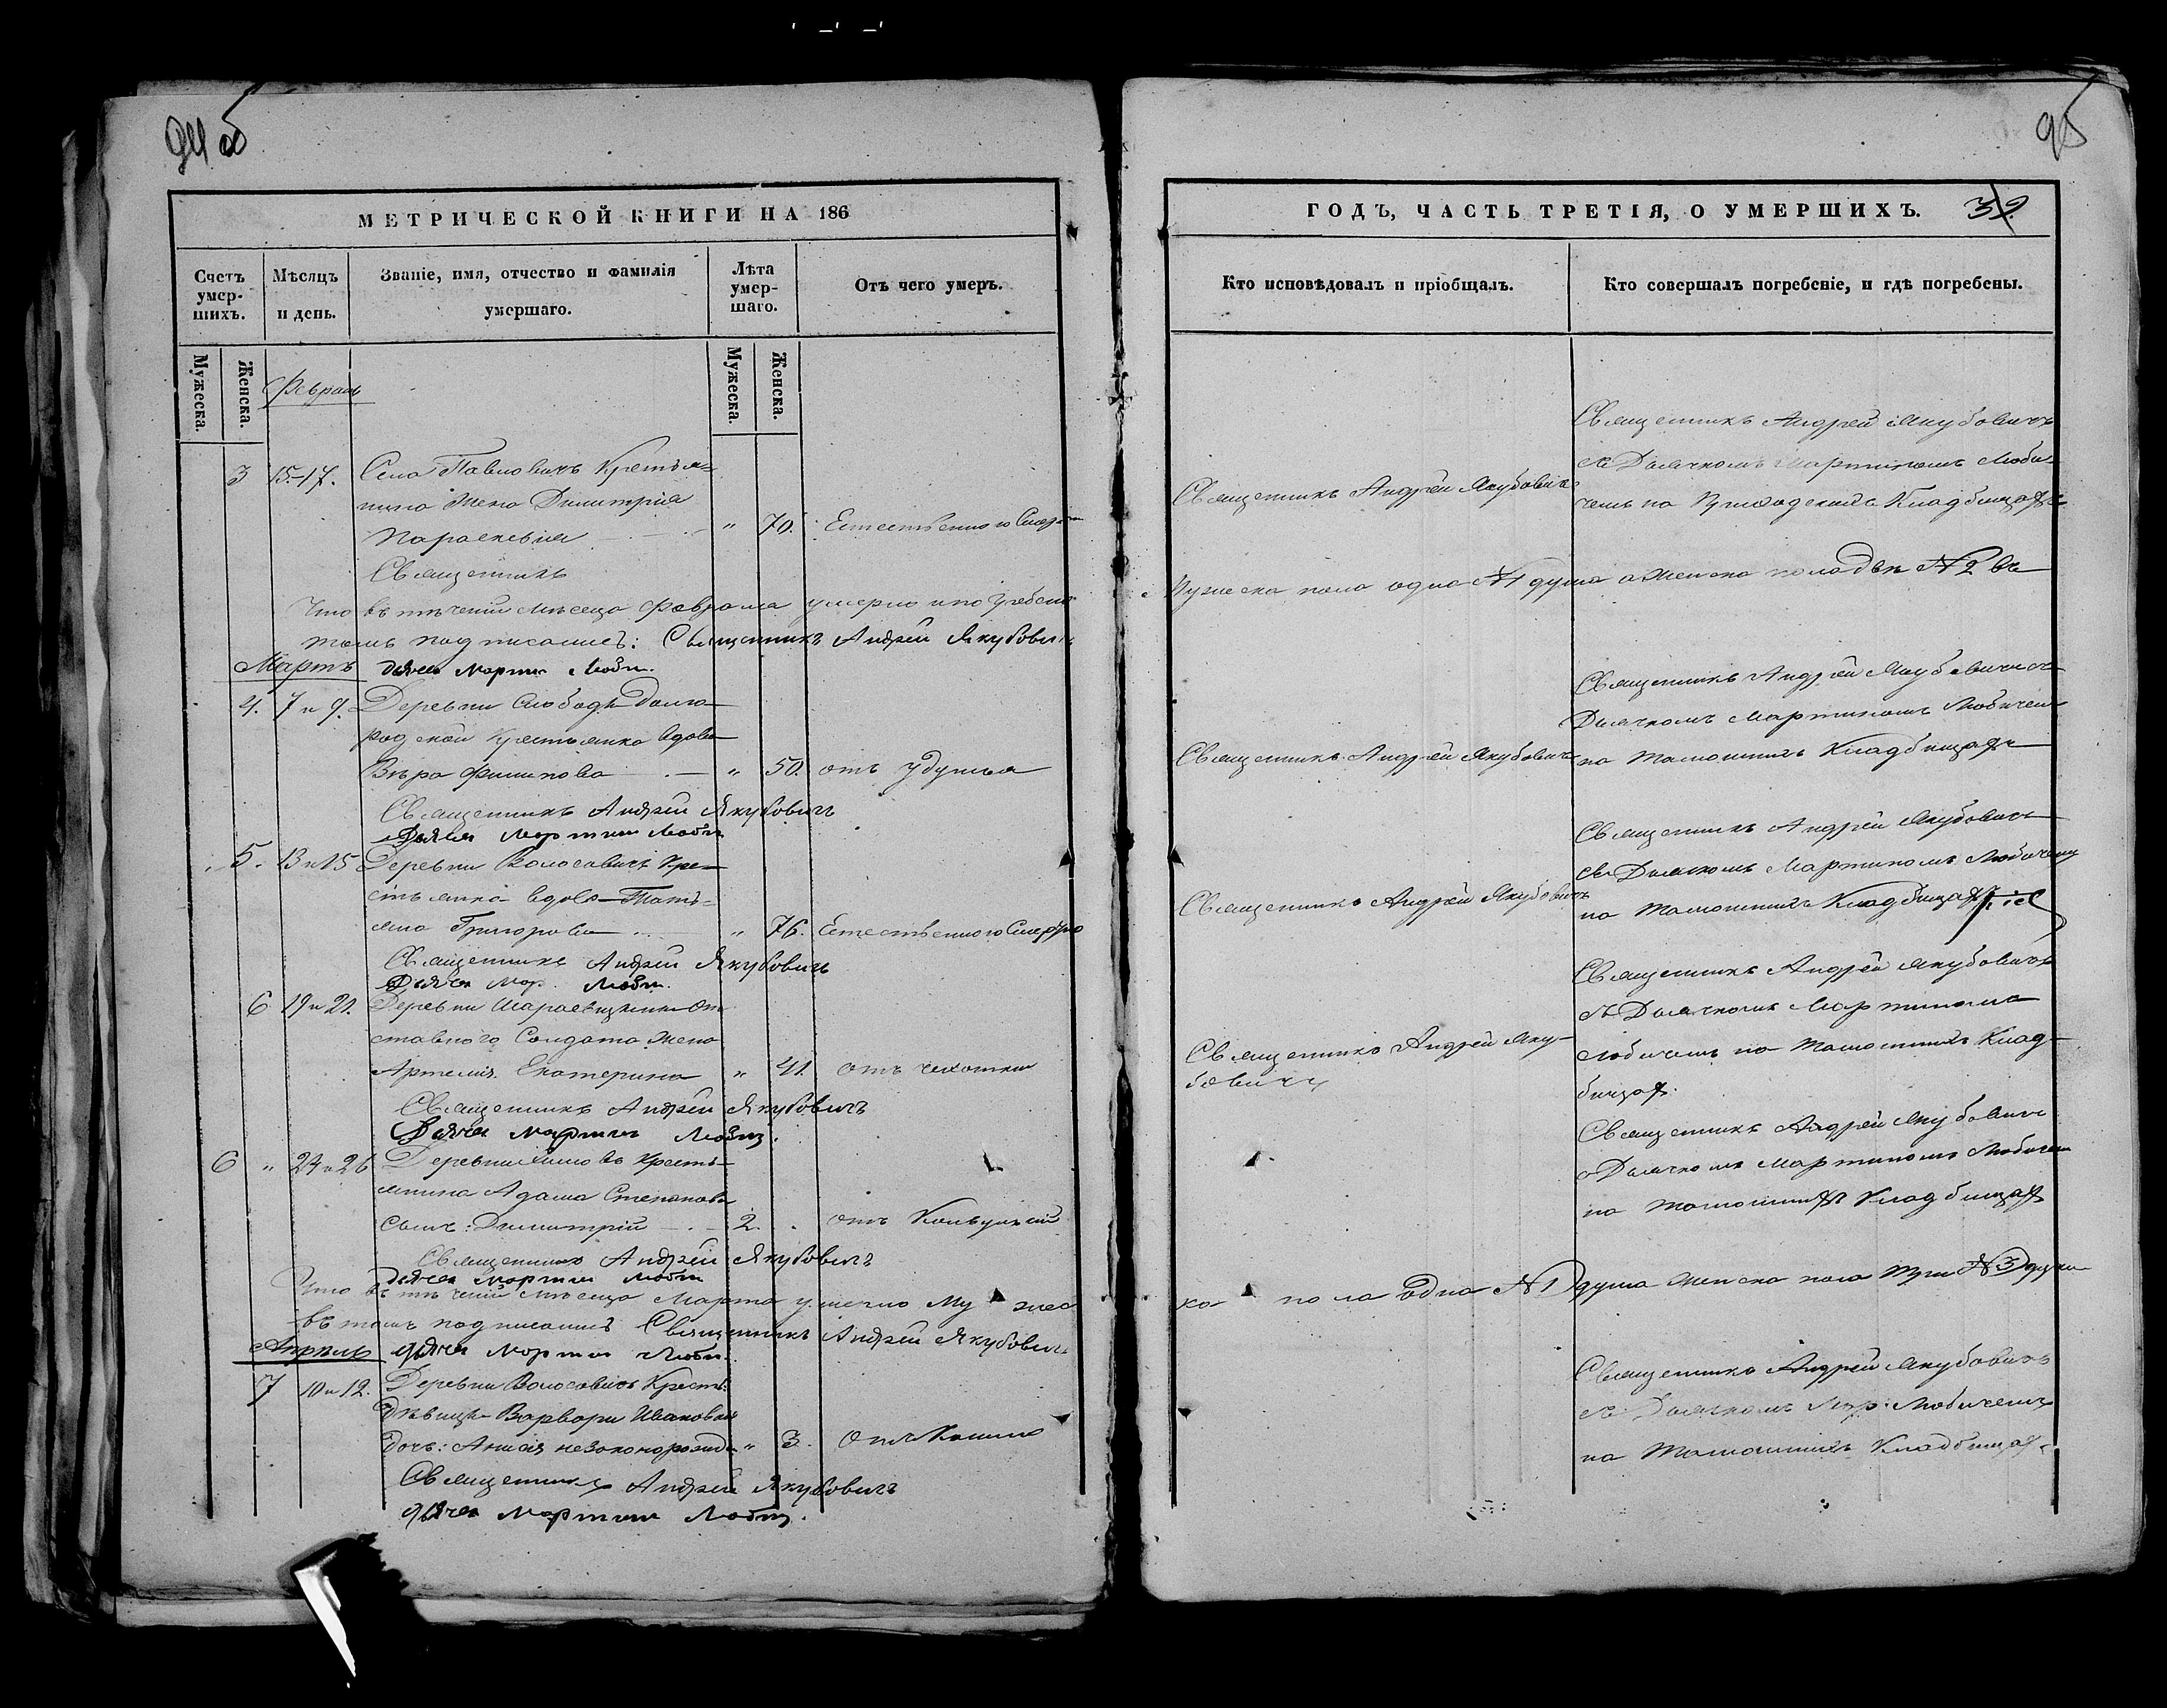 94 об
МЕТРИЧЕСКОЙ КНИГИ НА 186
Счетъ умер-шихъ.
Мѣсяцъ и день.
Званіе, имя, отчество и фамилія умершаго.
Лѣта умер-шаго.
Отъ чего умеръ.
Мужеска.
Женска.
Мужеска.
Женска.
Февраль
3 15-17. Села Павловичъ Крестья-
нина жена Димитрія
Параскевія " 70. Естественною Смерт
Священникъ
Что въ теченіи мѣсяца февраля умерло и погребено
томъ подписались: Священникъ Андрей Якубович
Мартъ дьячек Мартин Любич.
4. 7 и 9. Деревни Слободы Долго-
родской Крестьянка вдова
Вѣра Филипова " 50. отъ удушья
Священникъ Андрей Якубовичъ
Дьячек Мартин Любич
5. 13 и 15 Деревни Волосовичъ Кре-
стьянка вдова Татi-
яна Григорова " 76. Естественною Смертію
Священникъ Андрей Якубовичъ
Дьячек Мар. Любич.
6 19 и 21. Деревни От
ставного Солдата жена
Артемія Екатерина " 41. отъ чехотки
Священникъ Андрей Якубовичъ
Дьячек Мартин Любич.
6 " 24 и 26 Деревни Кресть-
янина Адама Степанова
сынъ: Димитрій 2. отъ Конвульсій
Священникъ Андрей Якубовичъ
дьячек Мартин Любич
Что въ теченіи мѣсяца Марта умерло Му жес
въ томъ подписались Священникъ Андрей Якубович
Апрель дьячек Мартин Любич.
7 10 и 12. Деревни Волосовичъ Крест:
дѣвицы Варвары Ивановой
дочъ: Анисія незаконорожд " 3. Отъ Кашля
Священникъ Андрей Якубовичъ
дьячек Мартин Любич.
95
ГОДЪ, ЧАСТЬ ТРЕТІЯ, О УМЕРШИХЪ.
39
Кто исповѣдовалъ и пріобщалъ.
Кто совершалъ погребеніе, и гдѣ погребены.
Священникъ Андрей Якубовичъ
Священникъ Андрей Якубовичъ
съ Дьячкомъ Мартиномъ Люби-
чемъ на Приходскихъ Кладбищахъ
Мужеска пола одна №1 душа а женска пола двѣ №2 въ
Священникъ Андрей Якубовичъ
Священникъ Андрей Якубовичъ съ
Дьячкомъ Мартиномъ Любичем
на тамошнихъ Кладбищахъ
Священникъ Андрей Якубовичъ
Священникъ Андрей Якубовичъ
съ Дьячкомъ Мартиномъ Любичемъ
на тамошнихъ Кладбищах
Священникъ Андрей Яку-
бовичъ
Священникъ Андрей Якубовичъ
съ Дьячкомъ Мартиномъ
Любичемъ на тамошнихъ Клад-
бищах.
Священникъ Андрей Якубович
съ Дьячкомъ Мартиномъ Любичем
на тамошних Кладбищах
ка пола одна №1 душа женска пола три №3 души
Священникъ Андрей Якубовичъ
съ Дьячкомъ Мар: Любичемъ
на тамошнихъ Кладбищах.